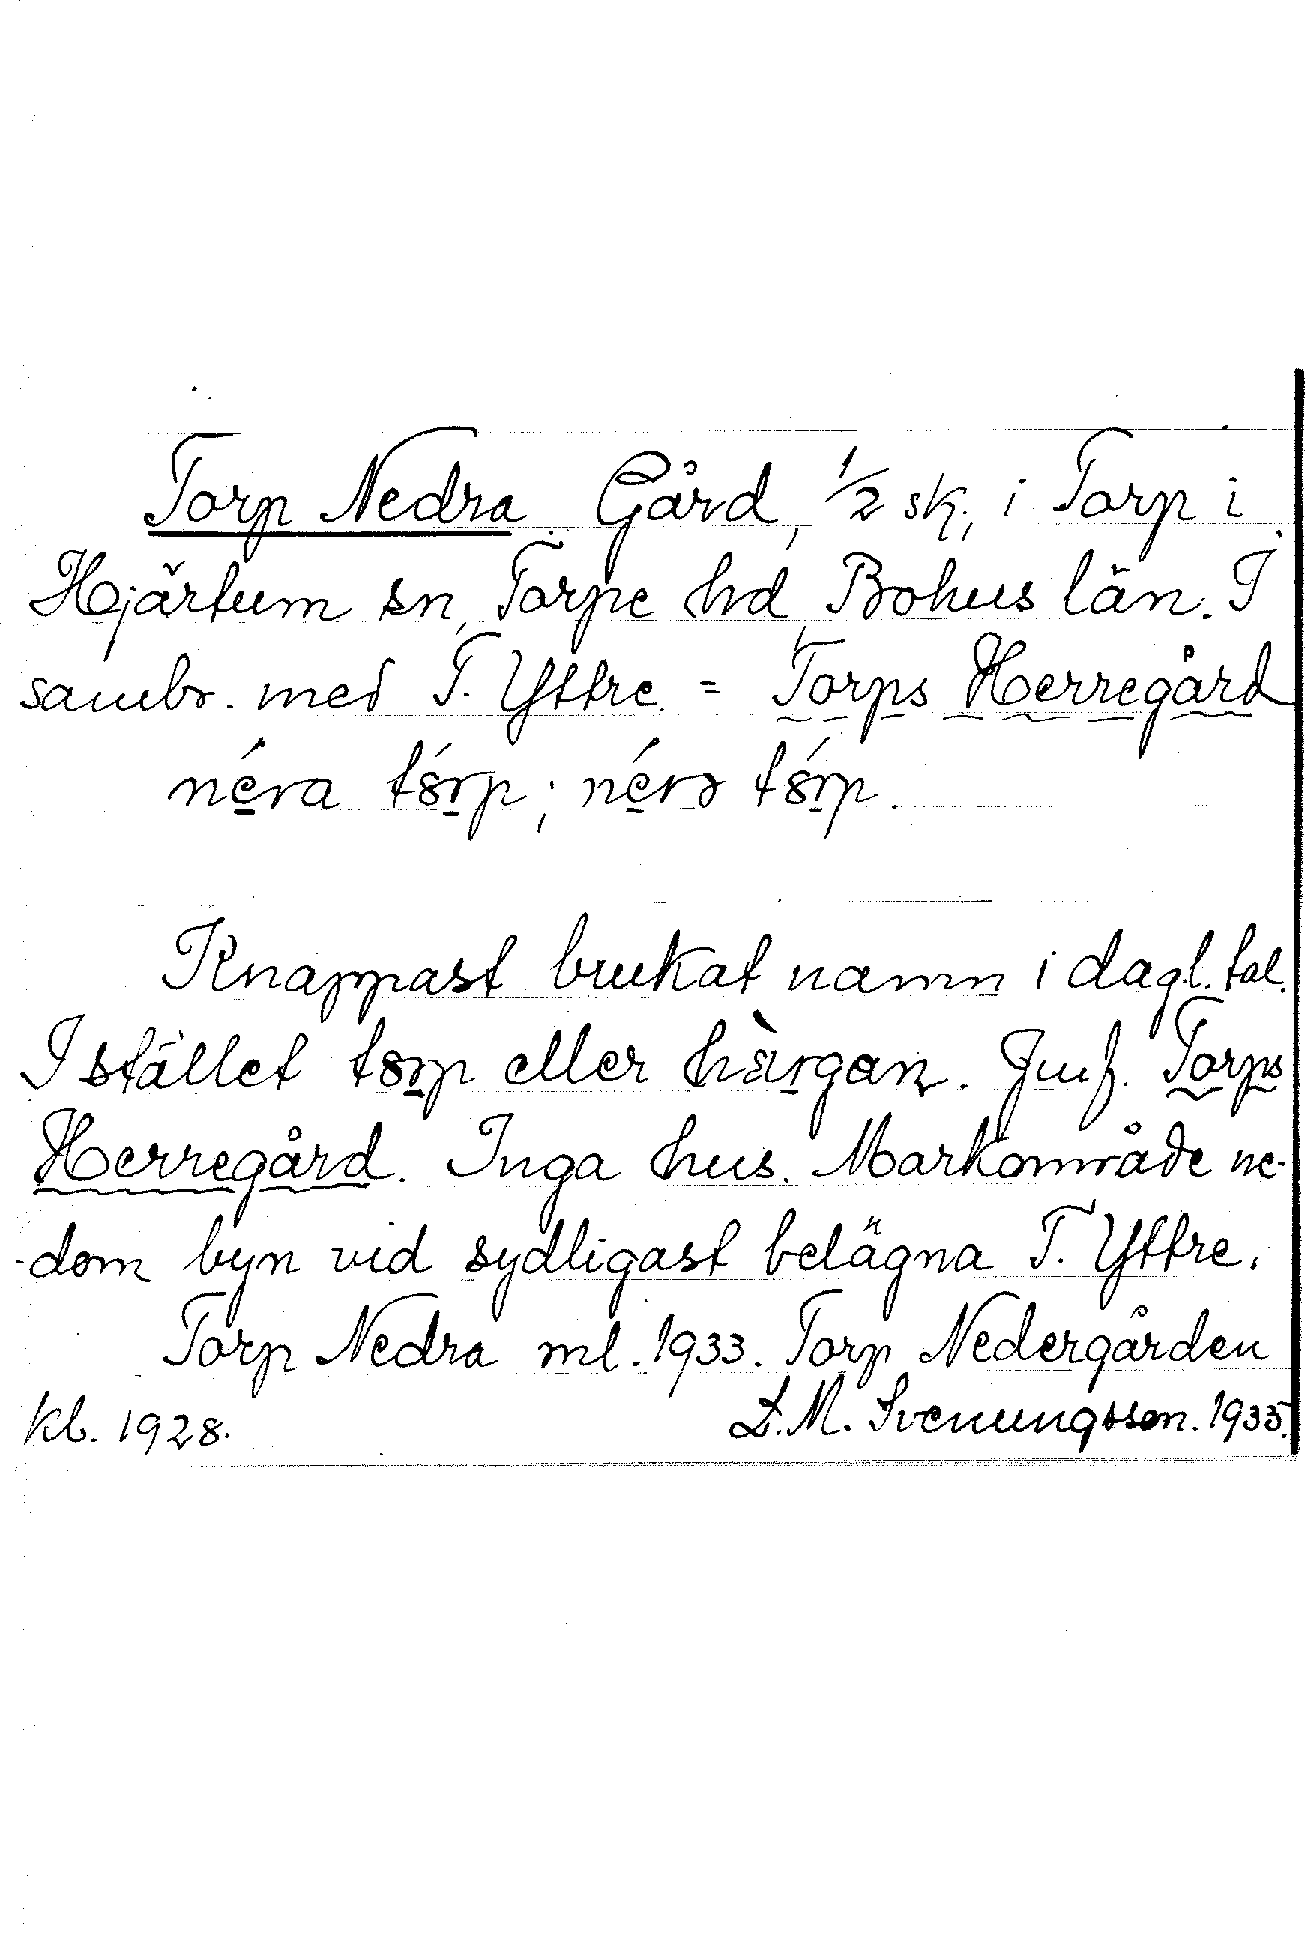 Torp Nedra Gård, 1/2 sk, i Torp i
Hjärtum sn, Torpe hd, Bohus län. I
sambr. med T. Yttre = Torps Herregård
néra tórp; nérə tórp.
Knappast brukat namn i dagl. tal.
I stället torp eller hàrgan. Jmf. Torps
Herregård. Inga hus. Markområde ne-
-dom byn vid sydligast belägna T. Yttre.
Torp Nedra ml. 1933. Torp Nedergården
kl. 1928. L. M. Svenungsson. 1935.